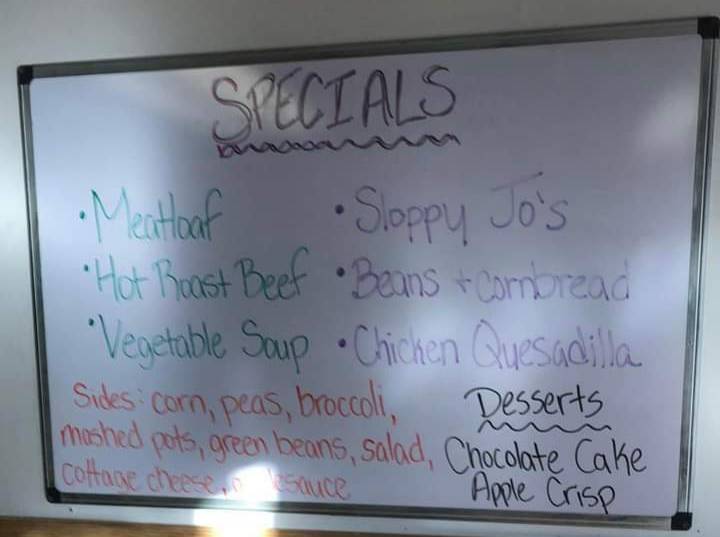 SPECIALS
• Meatloaf
• Hot Roast Beef
• Vegetable Soup
• Sloppy Jo's
• Beans + cornbread
• Chicken Quesadilla
Sides: corn, peas, broccoli,
mashed pots, green beans, salad,
cottage cheese,
Desserts
Chocolate Cake
Apple Crisp